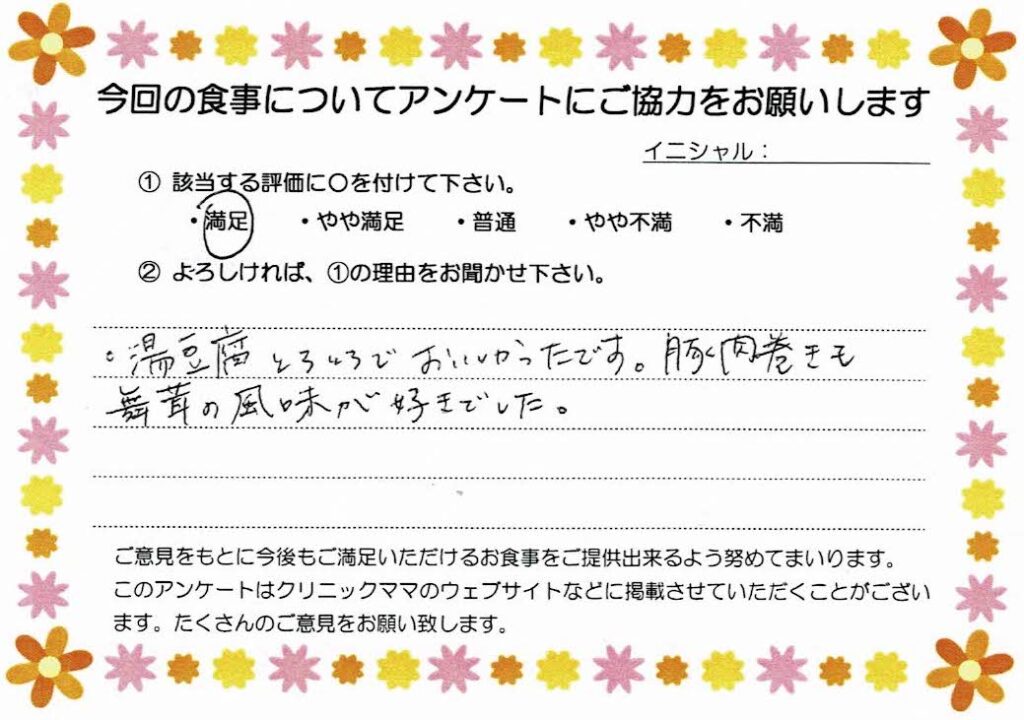 今回の食事についてアンケートにご協力をお願いします
イニシャル：
① 該当する評価に○を付けて下さい。
・満足　・やや満足　・普通　・やや不満　・不満
② よろしければ、①の理由をお聞かせ下さい。
・湯豆腐とろとろでおいしかったです。豚肉巻きも
舞茸の風味が好きでした。
ご意見をもとに今後もご満足いただけるお食事をご提供出来るよう努めてまいります。
このアンケートはクリニックママのウェブサイトなどに掲載させていただくことがござい
ます。たくさんのご意見をお願い致します。